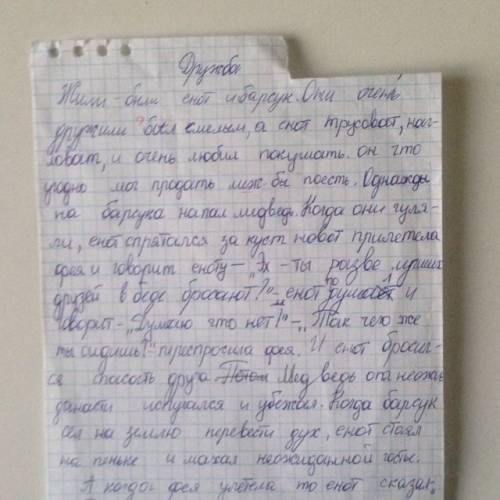 Дружба
Жили-были енот и барсук. Они очень
дружили был смелым, а енот трусоват, наг-
ловат, и очень любил покушать. он что
угодно мог продать лиж бы поесть. Однажды
на барсука напал медведь. Когда они гуля-
ли, енот спратался за куст и вот прилетела
фея и говорит еноту - „Эх - ты разве лучших
друзей в беде бросают?" - енот подумал и
говорит - „Думаю что нет!" - „Так чего же
ты сидишь!" переспросила фея. И енот бросил-
ся спасать друга. Медведь от неожи
данасти испугался и убежал. Когда барсук
сел на землю перевести дух, енот стоял
на пеньке и махал
А когда фея улетела то енот сказал,